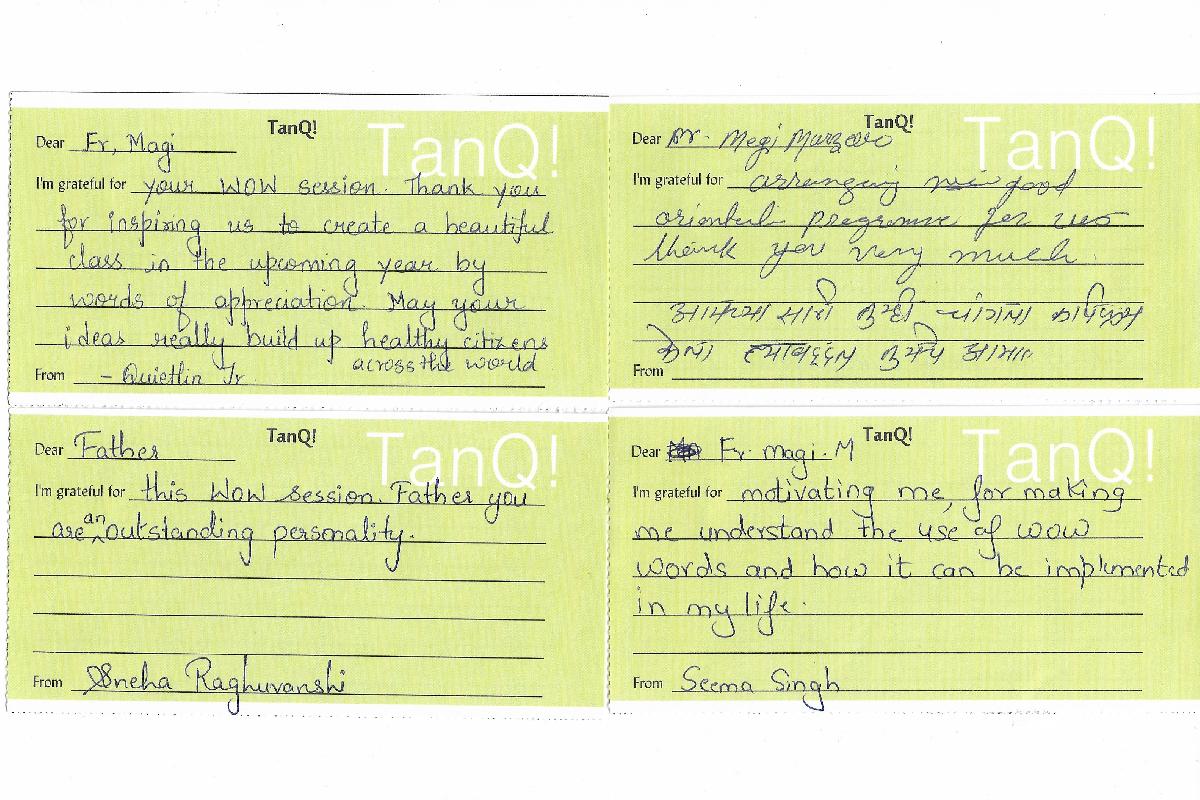 TanQ!
TanQ!
Dear Fr, Magi
I'm grateful for your WOW session. Thank you
for inspiring us to create a beautiful
class in the upcoming year by
words of appreciation. May your
ideas really build up healthy citizens
across the world
From - Quietlin Tr
TanQ!
TanQ!
Dear Megi
I'm grateful for arranging good
programme for
thank you very much.
From
TanQ!
TanQ!
Dear Father
I'm grateful for this WOW session. Father you
are an outstanding personality.
From Sneha Raghuvanshi
TanQ!
TanQ!
Dear Fr. Magi. M
I'm grateful for motivating me, for making
me understand the use of wow
words and how it can be implemented
in my life.
From Seema Singh